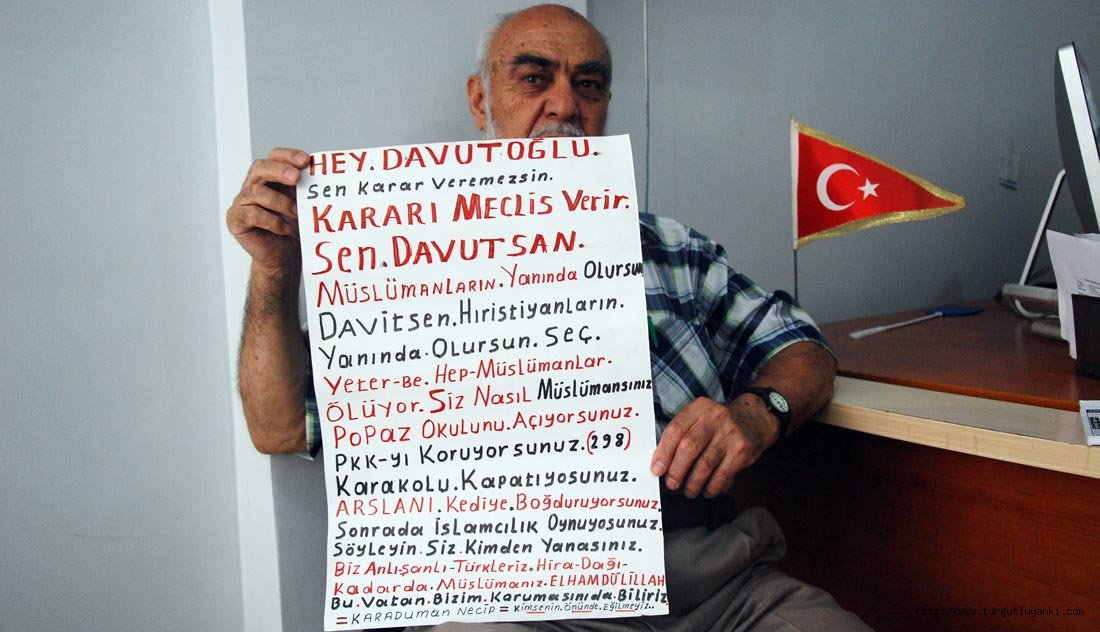 HEY. DAVUTOĞLU.
Sen Karar Veremezsin.
KARARI MECLİS Verir.
Sen. DAVUTSAN.
MÜSLÜMANLARIN. Yanında Olursun
DAVİtsen. Hıristiyanların.
Yanında. Olursun. Seç.
Yeter-Be. Hep-Müslümanlar.
ÖLÜYOR. Siz Nasıl Müslümansınız
PoPaz Okulunu. Açıyorsunuz.
PKK-yı Koruyorsunuz. (298)
Karakolu. Kapatıyosunuz.
ARSLANI. Kediye. Boğduruyorsunuz.
Sonrada İslamcılık Oynuyosunuz.
Söyleyin. Siz. Kimden Yanasınız.
Biz Anlı-Şanlı-Türkleriz. Hira-Dağı-
Kadarda. Müslümanız. ELHAMDÜLİLLAH
Bu. Vatan. Bizim. Korumasınıda. Biliriz
= KARADUMAN NECİP = Kimsenin. Önünde. Eğilmeyiz..
http://www.turgutluyanki.com